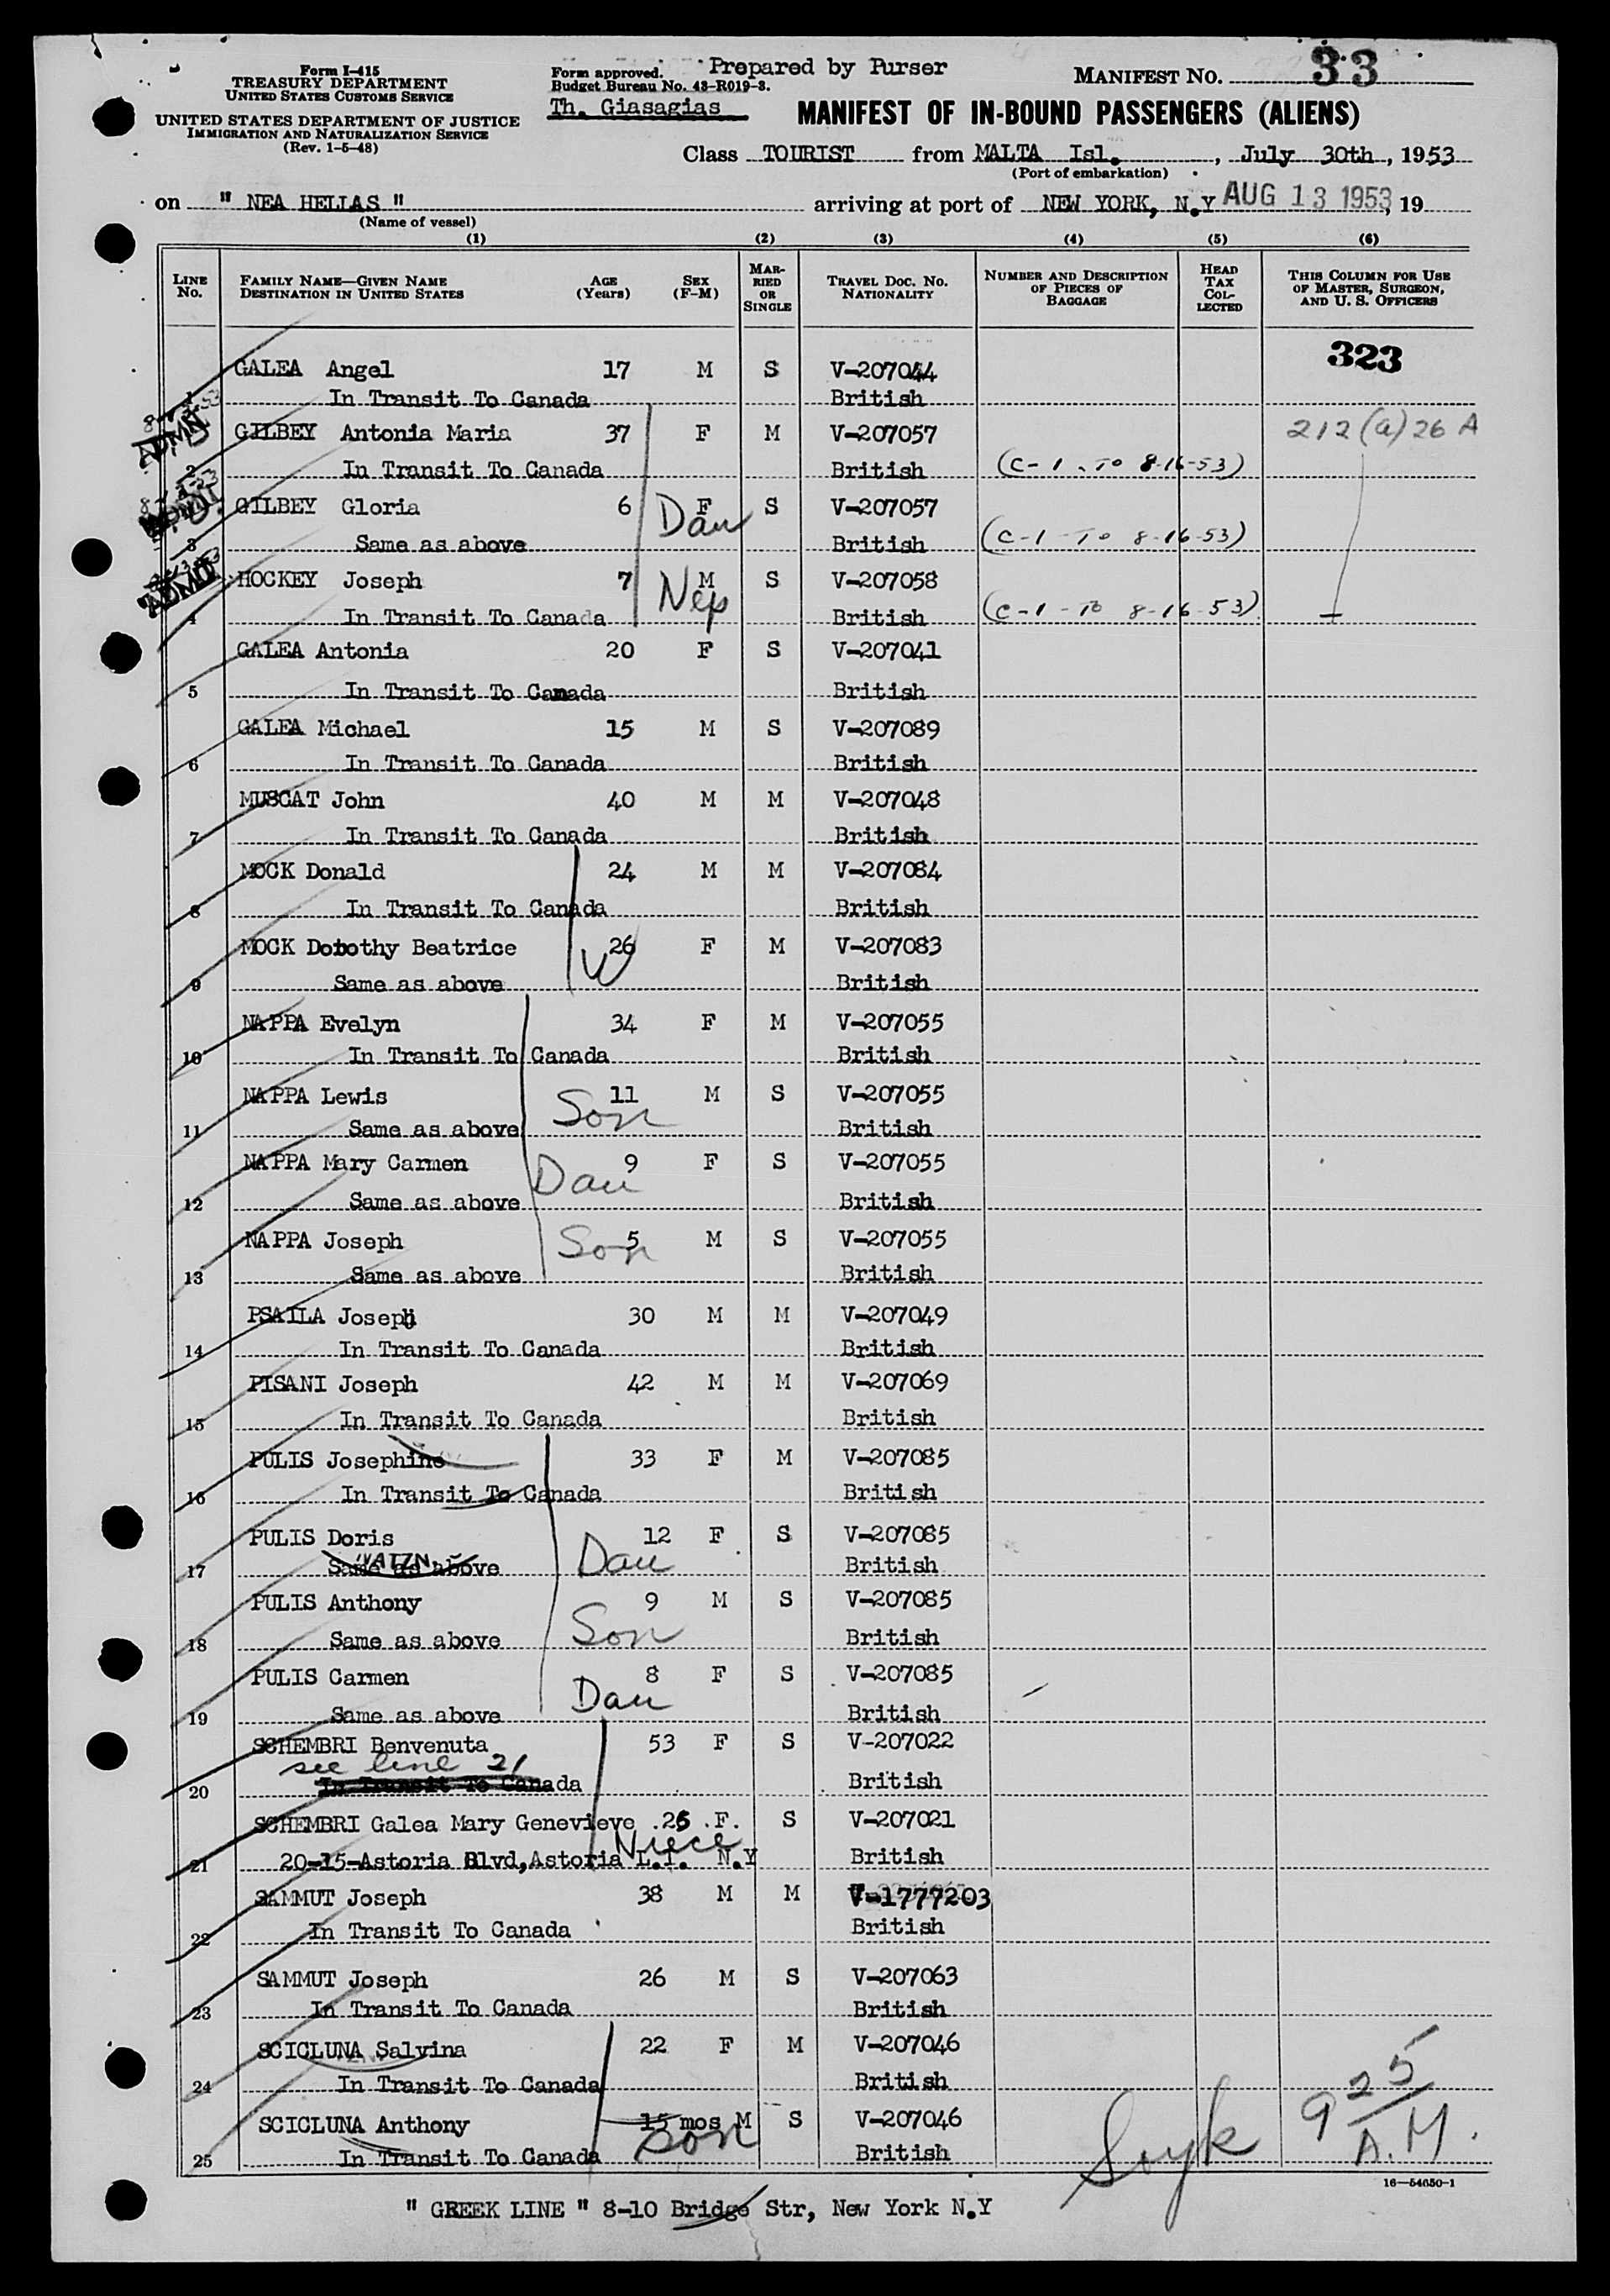 Form I-415
TREASURY DEPARTMENT
UNITED STATES CUSTOMS SERVICE
UNITED STATES DEPARTMENT OF JUSTICE
IMMIGRATION AND NATURALIZATION SERVICE
(Rev. 1-5-48)
Form approved.
Budget Bureau No. 43-R019-3.
Prepared by Purser
Th. Giasagias
MANIFEST NO. 33
MANIFEST OF IN-BOUND PASSENGERS (ALIENS)
Class TOURIST from MALTA Isl. , July 30th, 1953
(Port of embarkation)
on " NEA HELLAS " arriving at port of NEW YORK, N.Y AUG 13 1953, 19
(Name of vessel)
(1) (2) (3) (4) (5) (6)
LINE No. FAMILY NAME—GIVEN NAME DESTINATION IN UNITED STATES AGE (Years) SEX (F-M) MARRIED OR SINGLE TRAVEL DOC. No. NATIONALITY NUMBER AND DESCRIPTION OF PIECES OF BAGGAGE HEAD TAX COLLECTED THIS COLUMN FOR USE OF MASTER, SURGEON, AND U. S. OFFICERS
323
GALEA Angel 17 M S V-207044
1 In Transit To Canada British
GILBEY Antonia Maria 37 F M V-207057 212(a)26 A
ADMIT
2 In Transit To Canada British (C-1 - TO 8-16-53)
GILBEY Gloria 6 F S V-207057
Dau
3 Same as above British (C-1 - TO 8-16-53)
HOCKEY Joseph 7 M S V-207058
ADMIT Nep
4 In Transit To Canada British (C-1 - TO 8-16-53)
GALEA Antonia 20 F S V-207041
5 In Transit To Canada British
GALEA Michael 15 M S V-207089
6 In Transit To Canada British
MUSCAT John 40 M M V-207048
7 In Transit To Canada British
MOCK Donald 24 M M V-207084
8 In Transit To Canada British
MOCK Dorothy Beatrice 26 F M V-207083
W
9 Same as above British
NAPPA Evelyn 34 F M V-207055
10 In Transit To Canada British
NAPPA Lewis 11 M S V-207055
Son
11 Same as above British
NAPPA Mary Carmen 9 F S V-207055
Dau
12 Same as above British
NAPPA Joseph 5 M S V-207055
Son
13 Same as above British
PSAILA Joseph 30 M M V-207049
14 In Transit To Canada British
PISANI Joseph 42 M M V-207069
15 In Transit To Canada British
PULIS Josephine 33 F M V-207085
16 In Transit To Canada British
PULIS Doris 12 F S V-207085
NATZN. Dau
17 Same as above British
PULIS Anthony 9 M S V-207085
Son
18 Same as above British
PULIS Carmen 8 F S V-207085
Dau
19 Same as above British
SCHEMBRI Benvenuta 53 F S V-207022
see line 21
20 In Transit To Canada British
SCHEMBRI Galea Mary Genevieve .26 .F. S V-207021
Niece
21 20-15-Astoria Blvd,Astoria L.I. N.Y British
SAMMUT Joseph 38 M M V-1777203
22 In Transit To Canada British
SAMMUT Joseph 26 M S V-207063
23 In Transit To Canada British
SCICLUNA Salvina 22 F M V-207046
24 In Transit To Canada British
SCICLUNA Anthony 15 mos M S V-207046
son
25 In Transit To Canada British
9 25 A.M.
16—54650-1
" GREEK LINE " 8-10 Bridge Str, New York N.Y